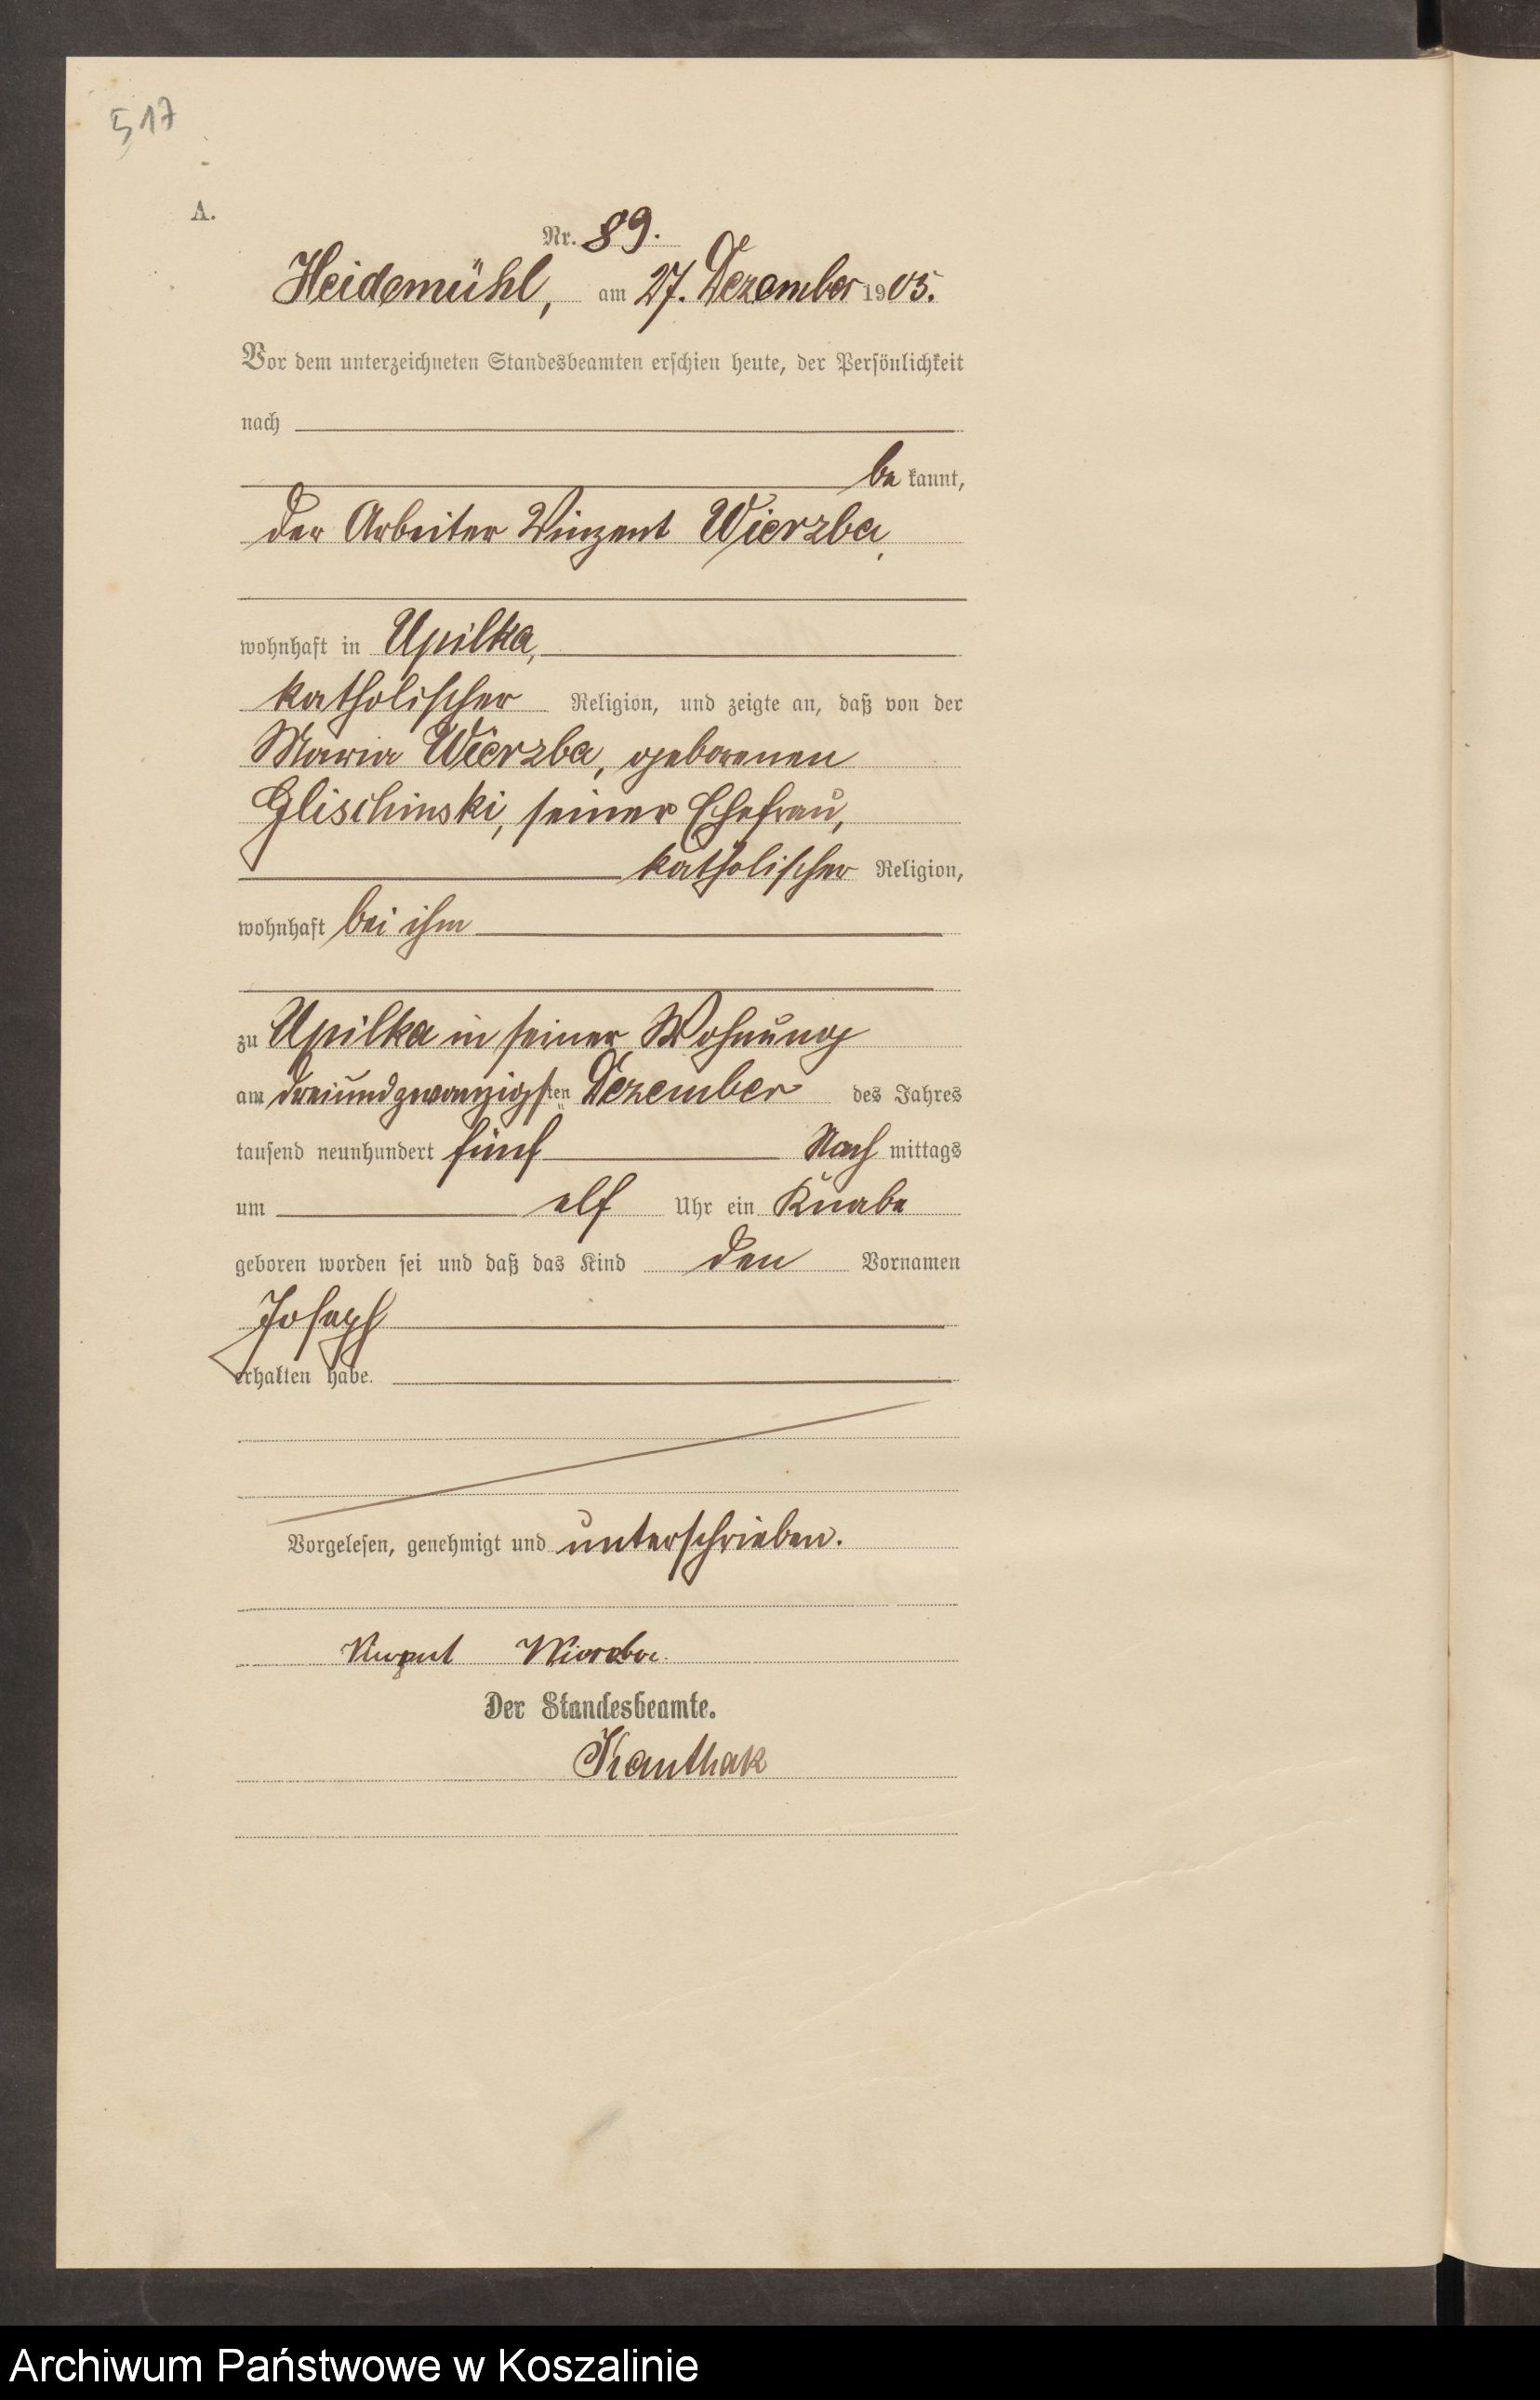 517
A.
Nr. 89.
Heidemühl, am 27. Dezember 1905.
Vor dem unterzeichneten Standesbeamten erschien heute, der Persönlichkeit
nach
be kannt,
der Arbeiter Vinzent Wierzba,
wohnhaft in Upilka,
katholischer Religion, und zeigte an, daß von der
Maria Wierzba, geborenen
Glischinski, seiner Ehefrau,
katholischer Religion,
wohnhaft bei ihm
zu Upilka in seiner Wohnung
am dreiundzwanzigsten Dezember des Jahres
tausend neunhundert fünf Nach mittags
um elf Uhr ein Knabe
geboren worden sei und daß das Kind den Vornamen
Joseph
erhalten habe.
Vorgelesen, genehmigt und unterschrieben.
Wierzba.
Der Standesbeamte.
Kauthak
Archiwum Państwowe w Koszalinie